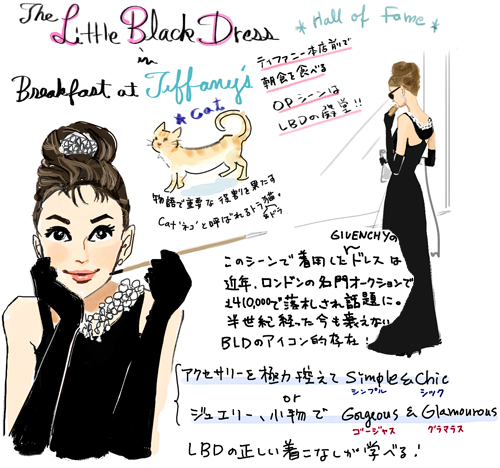 The Little Black Dress
in
Breakfast at Tiffany's
*Hall of Fame*
ティファニー本店前で
朝食を食べる
OPシーンは
LBDの殿堂!!
*Cat
物語で重要な役割を果たす
Cat"ネコ"と呼ばれるトラ猫。
GIVENCHYの
このシーンで着用したドレスは
近年、ロンドンの名門オークションで
£410,000で落札され話題に。
半世紀経った今も衰えない
BLDのアイコン的存在!
アクセサリーを極力控えて Simple&Chic
シンプル シック
or
ジュエリー、小物で Gorgeous & Glamourous
ゴージャス グラマラス
LBDの正しい着こなしが学べる!